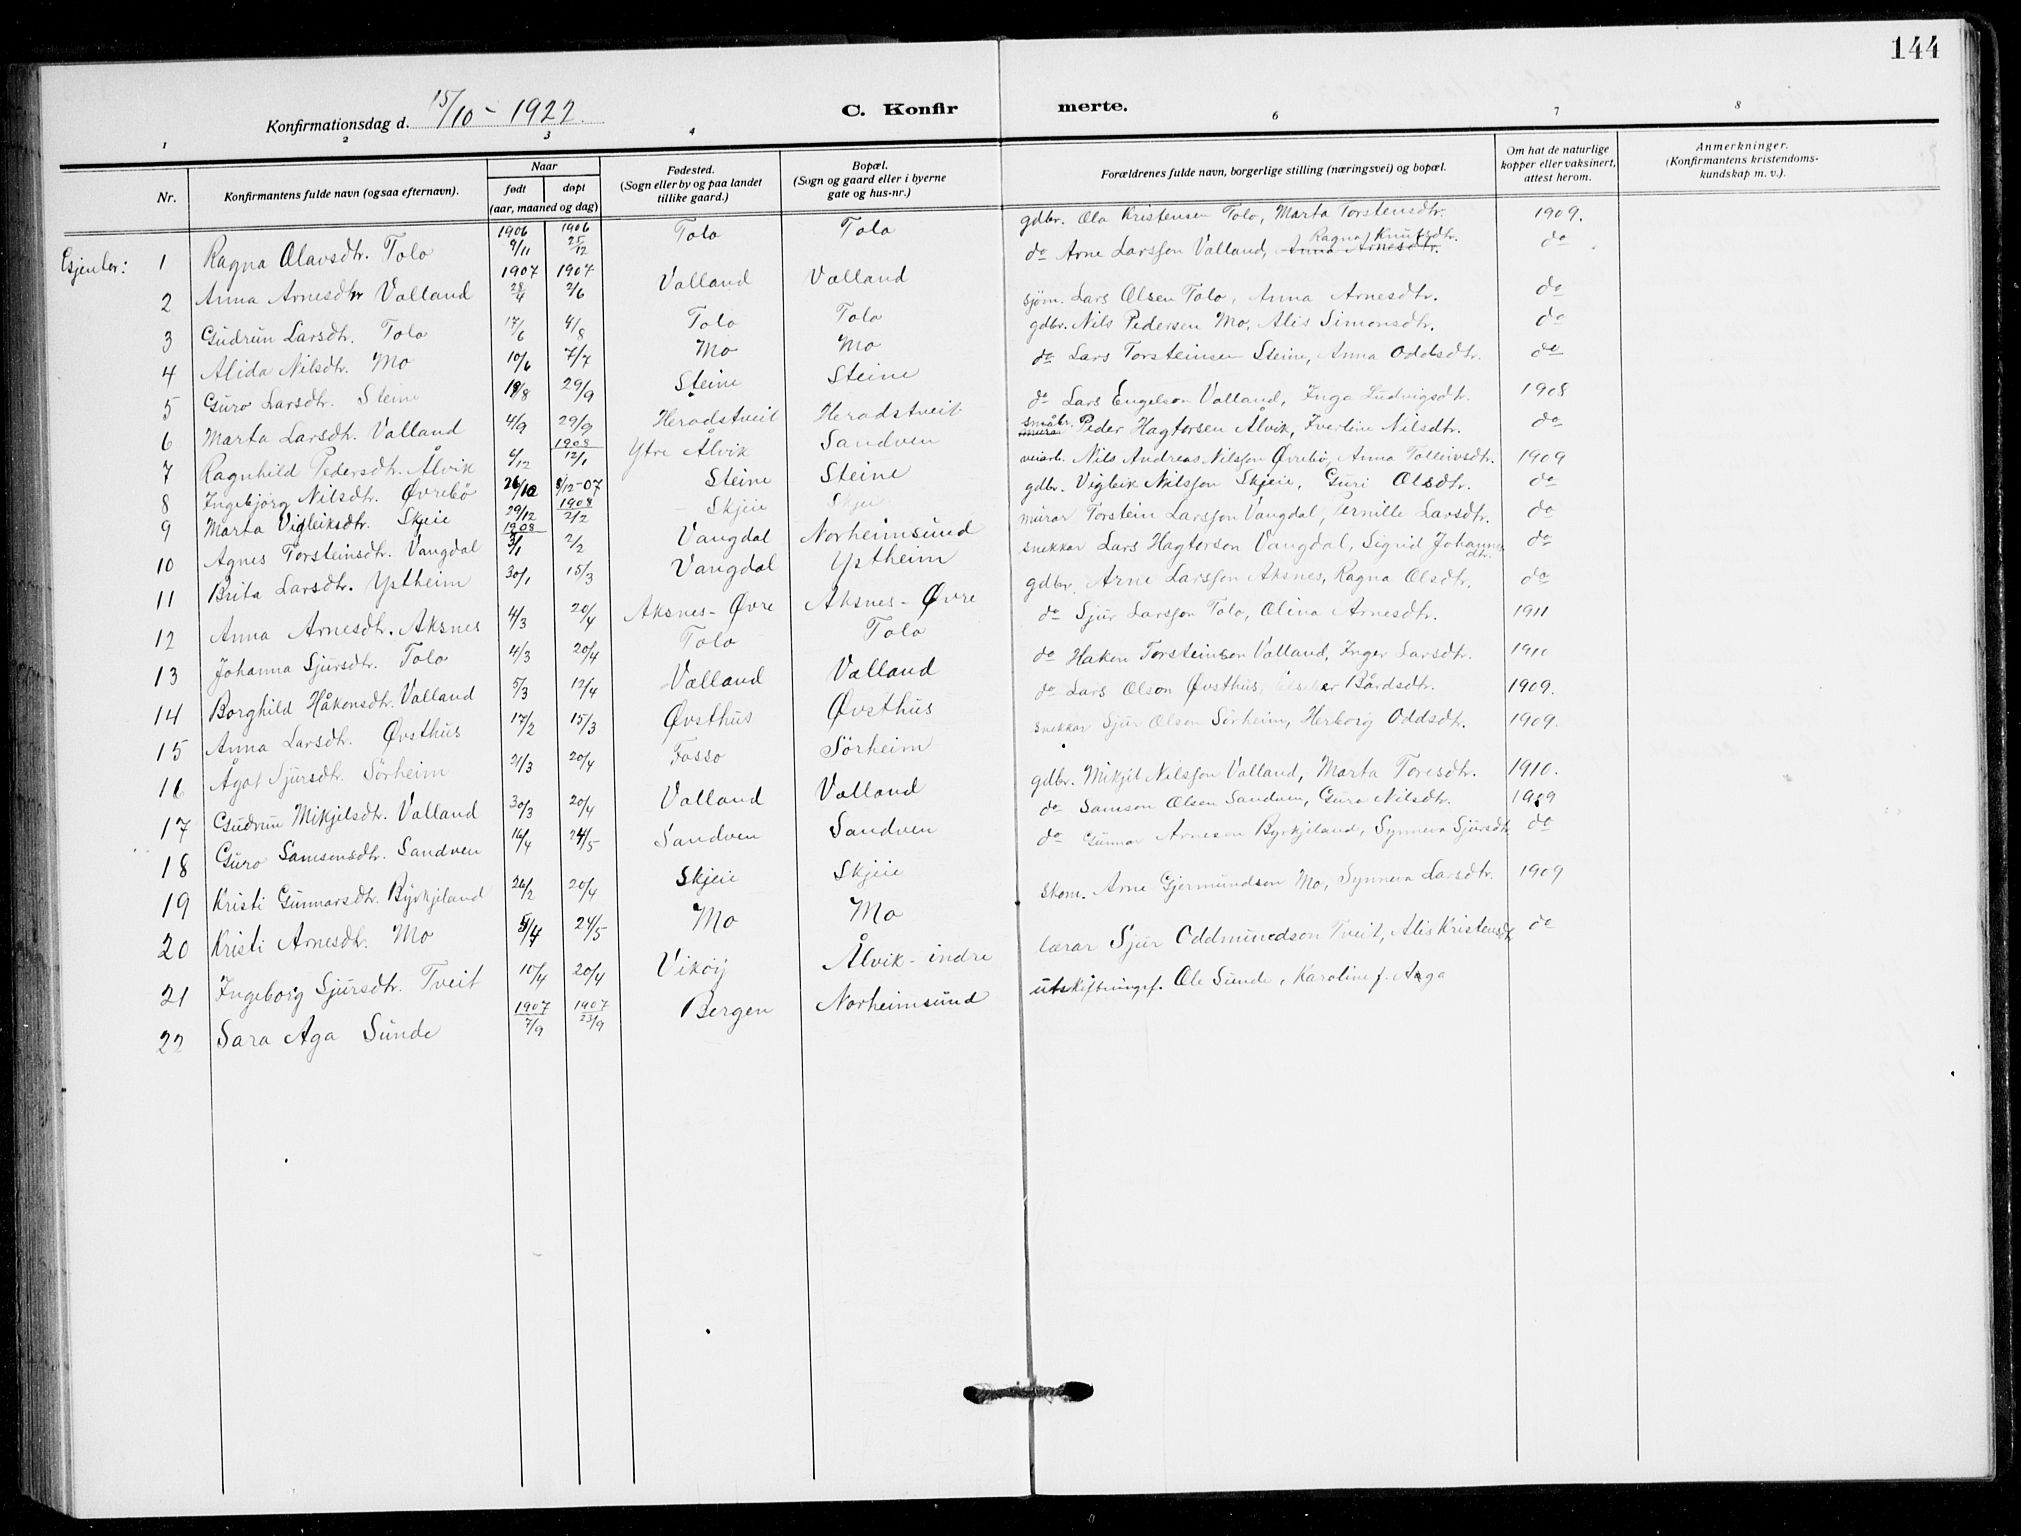 144
Konfirmationsdag d. 15/10 - 1922.
C. Konfirmerte.
1 2 3 4 6 7 8
Nr. | Konfirmantens fulde navn (ogsaa efternavn). | Naar født | døpt (aar, maaned og dag) | Fødested. (Sogn eller by og paa landet tillike gaard.) | Bopæl. (Sogn og gaard eller i byerne gate og hus-nr.) | Forældrenes fulde navn, borgerlige stilling (næringsvei) og bopæl. | Om hat de naturlige kopper eller vaksinert, attest herom. | Anmerkninger. (Konfirmantens kristendomskundskap m. v.).
1 Ragna Olavsdtr. Tolo | 1906 9/11 | 1906 25/12 | Tolo | Tolo | gdbr. Ola Kristensen Tolo, Marta Torstensdtr. | 1909.
2 Anna Arnesdtr Valland | 1907 28/4 | 1907 2/6 | Valland | Valland | do Arne Larsson Valland, Anna Arnesdtr. Ragna Knutsdtr. | do
3 Gudrun Larsdtr. Tolo | 17/6 | 4/8 | Tolo | Tolo | sjøm. Lars Olsen Tolo, Anna Arnesdtr. | do
4 Alida Nilsdtr. Mo | 10/6 | 7/7 | Mo | Mo | gdbr. Nils Pedersen Mo, Alis Simonsdtr. | do
5 Guro Larsdtr. Steine | 18/8 | 29/9 | Steine | Steine | do Lars Torsteinsen Steine, Anna Oddsdtr. | do
6 Marta Larsdtr. Valland | 4/9 | 29/9 | Heradstveit | Heradstveit | do Lars Engelson Valland, Inga Ludvigsdtr. | 1908
7 Ragnhild Pedersdtr. Ålvik | 6/12 | 1908 12/1 | Ytre Ålvik | Sandven | småbr. Peder Hagtorsen Ålvik, Iverline Nilsdtr. | do
8 Ingebjørg Nilsdtr. Øvrebø | 26/10 | 8/12-07 | Steine | Steine | veiarb. Nils Andreas Nilsson Øvrebø, Anna Tolleivsdtr. | 1909
9 Marta Vigleiksdtr. Skjeie | 29/12 | 1908 2/2 | Skjeie | Skjeie | gdbr. Vigleik Nilsson Skjeie, Guri Olsdtr. | do
10 Agnes Torsteinsdtr. Vangdal | 1908 3/1 | 2/2 | Vangdal | Norheimsund | murar Torstein Larsson Vangdal, Pernille Larsdtr. | do
11 Brita Larsdtr. Yptheim | 30/1 | 15/3 | Vangdal | Yptheim | snekkar Lars Hagtorson Vangdal, Sigrid Johannesdtr. | do
12 Anna Arnesdtr. Aksnes | 4/3 | 20/4 | Aksnes-Øvre | Aksnes-Øvre | gdbr. Arne Larsson Aksnes, Ragna Olsdtr. | do
13 Johanna Sjursdtr. Tolo | 4/3 | 20/4 | Tolo | Tolo | do Sjur Larsson Tolo, Olina Arnesdtr. | 1911
14 Borghild Håkonsdtr. Valland | 5/3 | 12/4 | Valland | Valland | do Hakon Torsteinson Valland, Inger Larsdtr. | 1910
15 Anna Larsdtr. Øvsthus | 17/2 | 15/3 | Øvsthus | Øvsthus | do Lars Olson Øvsthus, Bårdsdtr. | 1909.
16 Ågot Sjursdtr. Sørheim | 21/3 | 20/4 | Fosso | Sørheim | snekkar Sjur Olsen Sørheim, Herborg Oddsdtr. | 1909.
17 Gudrun Mikjelsdtr. Valland | 30/3 | 20/4 | Valland | Valland | gdbr. Mikjel Nilsson Valland, Marta Toresdtr. | 1910.
18 Guro Samsonsdtr. Sandven | 16/4 | 24/5 | Sandven | Sandven | do Samson Olsen Sandven, Guro Nilsdtr. | 1909
19 Kristi Gunnarsdtr. Byrkjeland | 26/2 | 20/4 | Skjeie | Skjeie | do Gunnar Arneson Byrkjeland, Synneva Sjursdtr | do
20 Kristi Arnesdtr. Mo | 5/4 | 24/5 | Mo | Mo | skom. Arne Gjermundsen Mo, Synneva Larsdtr. | 1909
21 Ingeborg Sjursdtr. Tveit | 10/4 | 20/4 | Vikøy | Ålvik-indre | lærar Sjur Oddmundson Tveit, Alis Kristensdtr | do
22 Sara Aga Sunde | 1907 7/9 | 1907 23/9 | Bergen | Norheimsund | utskiftningsf. Ole Sunde, Karoline f. Aga